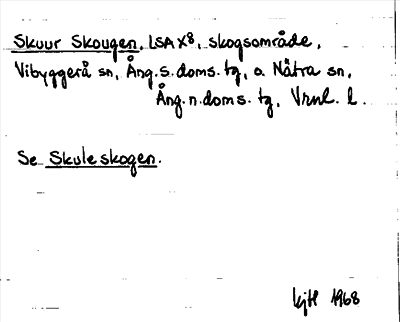 Skuur Skougen, LSA X8, skogsområde,
Vibyggerå sn, Ång. s. doms. tg, o. Nätra sn,
Ång. n. doms. tg, Vrnl. l.
Se Skuleskogen.
1968